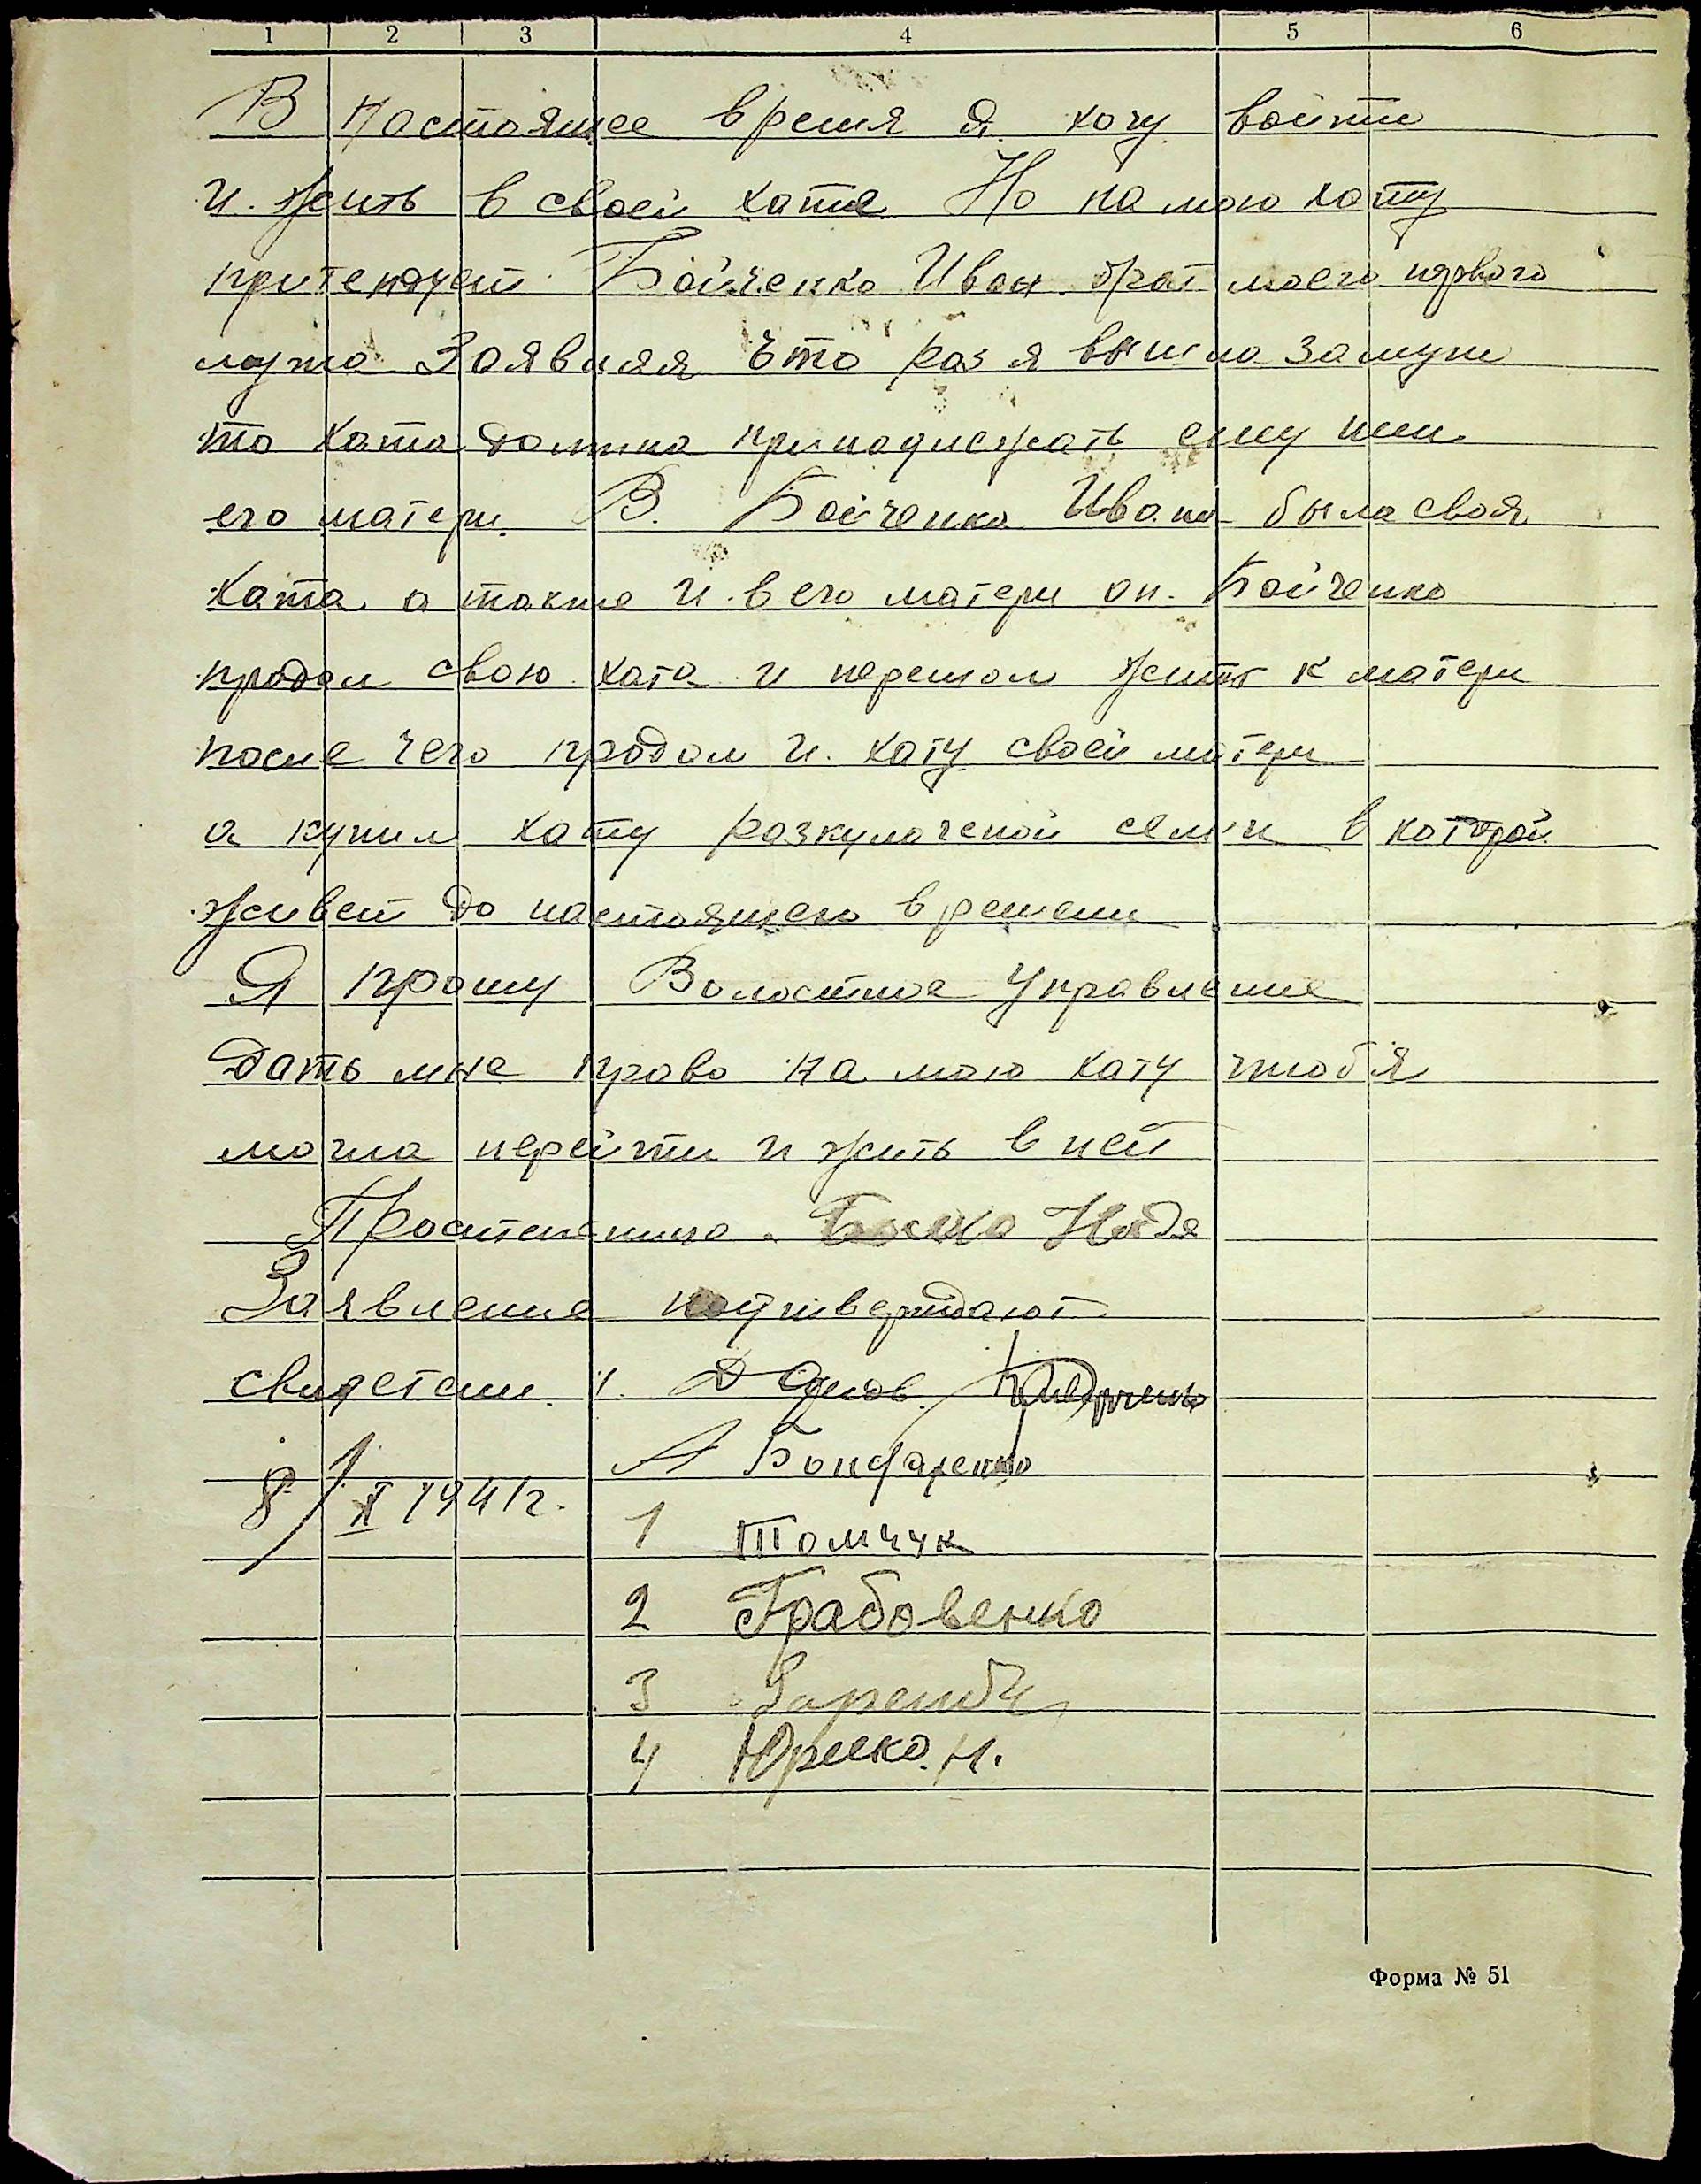 1 2 3 4 5 6
В настоящее время я хочу войти
и жить в своей хате Но на мою хату
притендует Бойченко Иван брат моего первого
мужа Заявляя что раз я вышла замуж
то хата должна принадлежать ему или
его матери В. Бойченко Ивана была своя
хата а также и в его матери он. Бойченко
продал свою хата и перешол жить к матери
после чего продал и. хату своей матери
а купил хату розкулаченой семьи в которой
живет до настоящего времени
Я прошу Волостное Управление
Дать мне право на мою хату чтоб я
могла перейти и жить в ней
Просительница Надя
Заявление поттверждают
свидетели
А Бондаренко
8/X 1941 г.
1 Томчук
2 Грабовенко
3
4 Юрско. Н.
Форма № 51